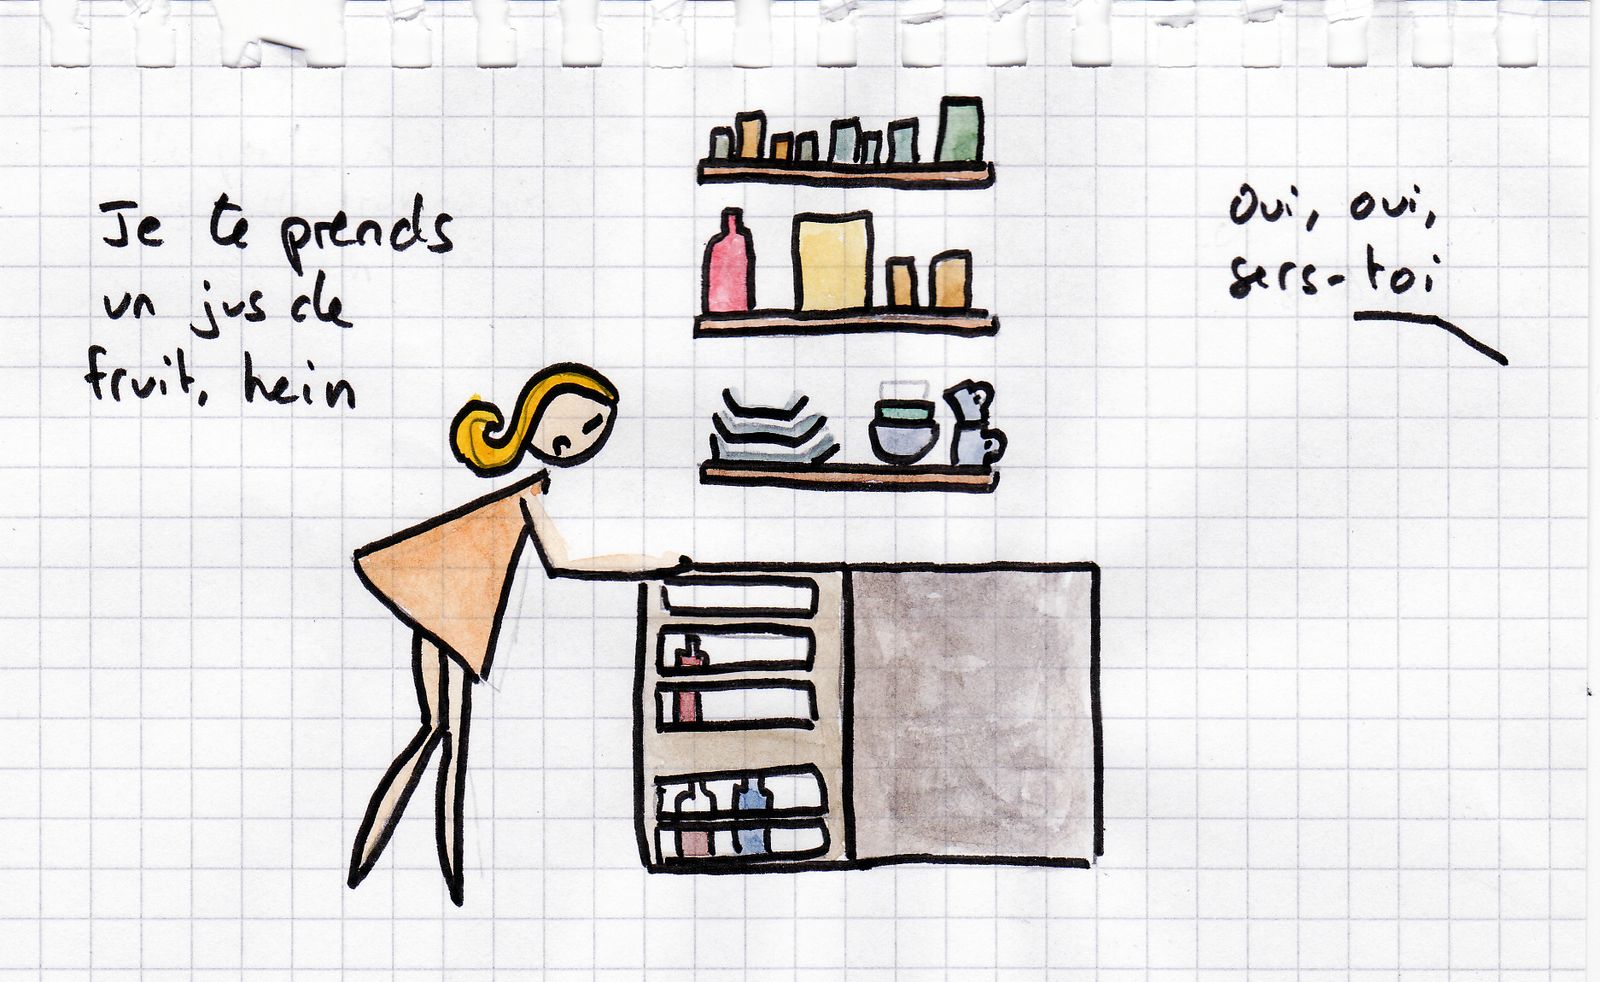 Je te prends
un jus de
fruit, hein
Oui, oui,
sers-toi